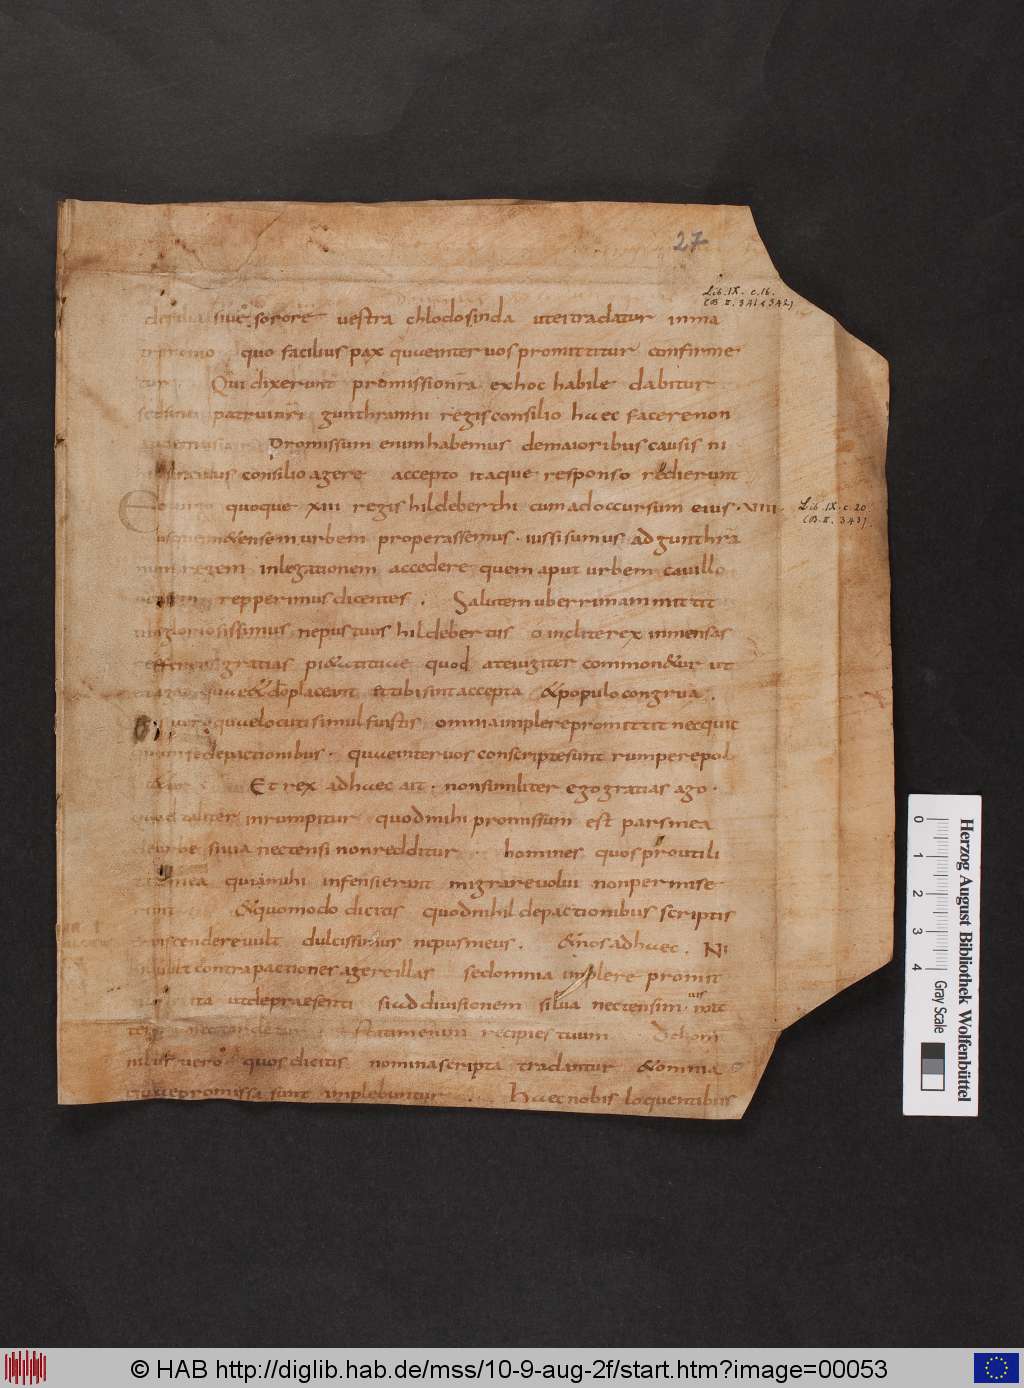 27
Lib. IX. c. 16.
(B. II. 341 & 342)
sive sorore vestra chlodosinda ut ei tradatur in ma
trimonio quo facilius pax quae inter vos promittitur confirme
tur Qui dixerunt promissionem ex hoc habile dabitur
patrui nri gunthramni regis consilio haec facere non
Promissum enim habemus de maioribus causis ni
consilio agere accepto itaque responso redierunt
quoque xiii regis hildeberthi cum ad occursum eius · VIIII ·
Lib. IX. c. 20
(B. II. 343)
urbem properassemus · iussi sumus ad gunthra
num regem in legationem accedere quem aput urbem cavillo
repperimus dicentes . Salutem uberrimam mittit
tibi gloriosissimus nepus tuus hildebertus o inclite rex inmensas
gratias pi&ati tuae quod a te iugiter common&ur ut
quae & do placeant et tibi sint accepta & populo congrua .
vero quae locuti simul fuistis omnia implere promittit nec quic
de pactionibus · quae inter vos conscripte sunt rumpere pol
Et rex adhaec ait · non similiter ego gratias ago ·
taliter inrumpitur quod mihi promissum est pars mea
de urbe silvanectensi non redditur · homines quos pro utili
mea quia mihi infensi erunt migrare volui non permise
runt & quomodo dicitis quod nihil de pactionibus scriptis
transcendere vult dulcissimus nepus meus . & nos adhaec . Ni
hil vult contra pactiones agere illas sed omnia implere promit
ita ut de praesenti si ad divisionem silvanectensim · vis mitt
statim enim recipies tuum De homi
nibus vero quos dicitis nomina scripta tradantur & omnia
quae promissa sunt implebuntur . Haec nobis loquentibus
Herzog August Bibliothek Wolfenbüttel
0 1 2 3 4
Gray Scale
© HAB http://diglib.hab.de/mss/10-9-aug-2f/start.htm?image=00053